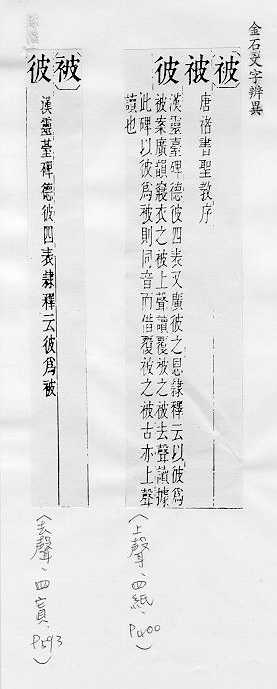 金石文字辨異
被
被 唐褚書聖教序
彼
漢靈臺碑德彼四表又廣彼之恩隸釋云以彼爲
被案廣韻寢衣之被上聲讀覆被之被去聲讀據
此碑以彼爲被則同音而借覆被之被古亦上聲
讀也
(上聲、四紙、P400)
被
彼
漢靈臺碑德彼四表隸釋云彼爲被
(去聲、四寘、P593)